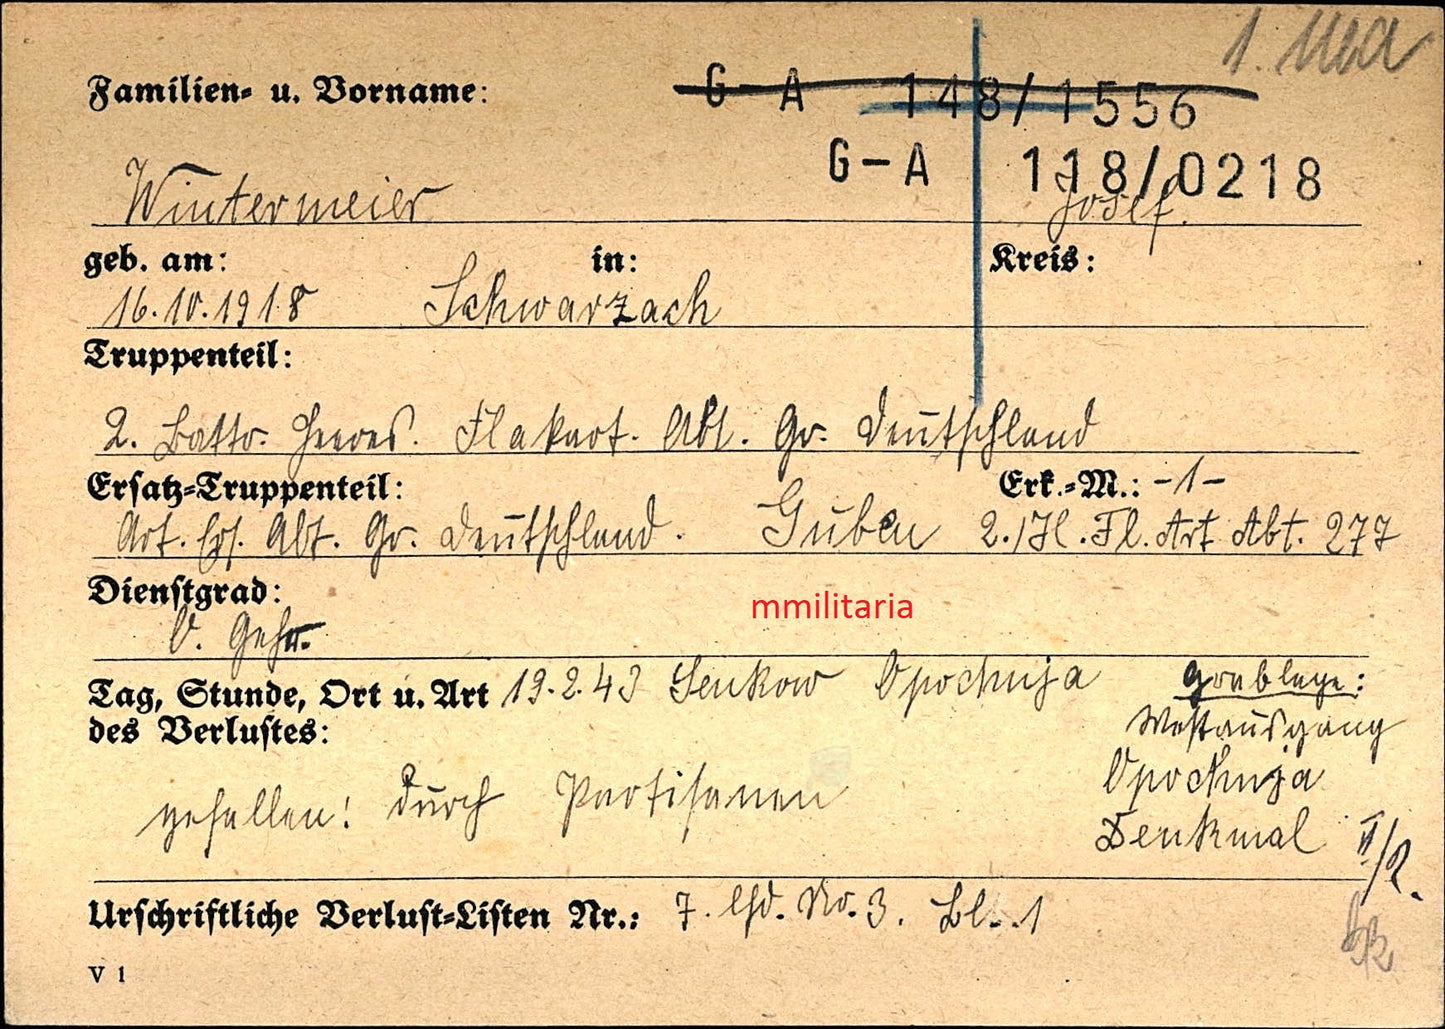 1. Mea
Familien- u. Vorname:
G-A 148/1556
G-A 118/0218
Wintermeier Josef.
geb. am: in: Kreis:
16.10.1918 Schwarzach
Truppenteil:
2. Battr. Heeres. Flakart. Abt. Gr. Deutschland
Ersatz-Truppenteil: Erk.-M.: -1-
Art. Ers. Abt. Gr. Deutschland. Guben 2./Hl. Fl. Art Abt. 277
Dienstgrad:
O. Gefr.
mmilitaria
Tag, Stunde, Ort u. Art 19.2.43 Senkow Opochnja Grablage:
des Verlustes: Westausgang
gefallen! durch Partisanen Opochnja
Denkmal II/2.
Urschriftliche Verlust-Listen Nr.: 7. lfd. Nr. 3. Bl. 1
V 1